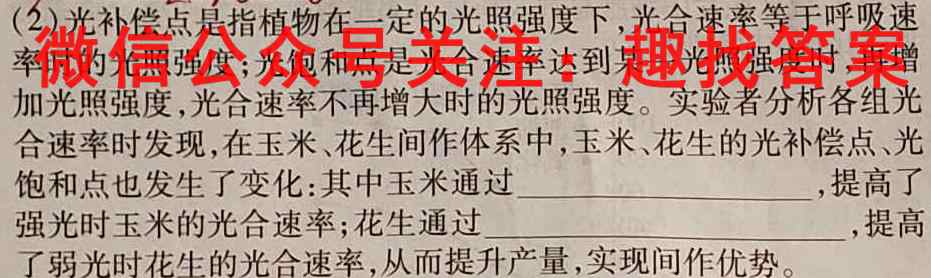 (2)光补偿点是指植物在一定的光照强度下,光合速率等于呼吸速
率时的光照强度;光饱和点是光合速率达到某一光照强度时,再增
微信公众号关注:趣找答案
加光照强度,光合速率不再增大时的光照强度。实验者分析各组光
合速率时发现,在玉米、花生间作体系中,玉米、花生的光补偿点、光
饱和点也发生了变化:其中玉米通过____________,提高了
强光时玉米的光合速率;花生通过____________,提高
了弱光时花生的光合速率,从而提升产量,实现间作优势。